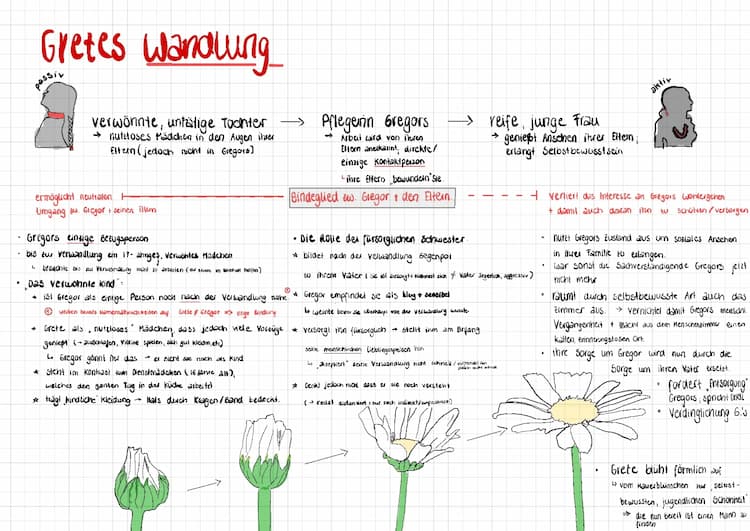 Gretes Wandlung
passiv
aktiv
verwöhnte, untätige Tochter
→ nutzloses Mädchen in den Augen ihrer
Eltern (jedoch nicht in Gregors)
→ Pflegerin Gregors
→ Arbeit wird von ihren
Eltern anerkannt, direkte/
einzige Kontaktperson
↳ ihre Eltern „bewundern" sie
→ reife, junge Frau
→ genießt Ansehen ihrer Eltern,
erlangt Selbstbewusstsein
ermöglicht neutralen
Umgang zw. Gregor + seinen Eltern
Bindeglied zw. Gregor + den Eltern
verliert das Interesse an Gregors Wohlergehen
+ damit auch daran ihn zu schützen/versorgen
• Gregors einzige Bezugsperson
• bis zur Verwandlung ein 17-jähriges, verwöhntes Mädchen
↳ brauchte bis zur Verwandlung nicht zu arbeiten
• „Das verwöhnte Kind"
★ ist Gregor als einzige Person noch nach der Verwandlung nahe
Grete/Gregor => enge Bindung
★ Grete als „nutzloses" Mädchen, dass jedoch viele Vorzüge
genießt (→ ausschlafen, Violine spielen, sich gut kleiden, etc)
↳ Gregor gönnt ihr das → er sieht sie noch als Kind
★ steht im Kontrast zum Dienstmädchen (16 Jahre alt),
welches den ganzen Tag in der Küche arbeitet
★ trägt kindliche Kleidung → Hals durch Kragen/Band bedeckt
• Die Rolle der fürsorglichen Schwester
★ bildet nach der Verwandlung Gegenpol
zu ihrem Vater
★ Gregor empfindet sie als klug + sensibel
↳ weinte bevor sie überhaupt von der Verwandlung wusste
★ versorgt ihn fürsorglich → stellt ihm am Anfang
seine menschlichen Lieblingsspeisen hin
↳ „akzeptiert" seine Verwandlung nicht
★ Denkt jedoch nicht dass er sie noch versteht
• nutzt Gregors Zustand aus um soziales Ansehen
in ihrer Familie zu erlangen.
↳ war sonst die Sachverständige Gregors, jetzt
nicht mehr
• räumt durch selbstbewusste Art auch das
Zimmer aus. → vernichtet damit Gregors menschl.
Vergangenheit + macht aus dem Menschenzimmer einen
kalten, erinnerungslosen Ort.
• ihre Sorge um Gregor wird nun durch die
Sorge um ihren Vater ersetzt.
• fordert „Entsorgung"
Gregors, spricht
• Verdinglichung G.'s
• Grete blüht förmlich auf
↳ vom Mauerblümchen zur „selbst-
bewussten, jugendlichen Schönheit"
→ die nun bereit ist einen Mann zu
finden